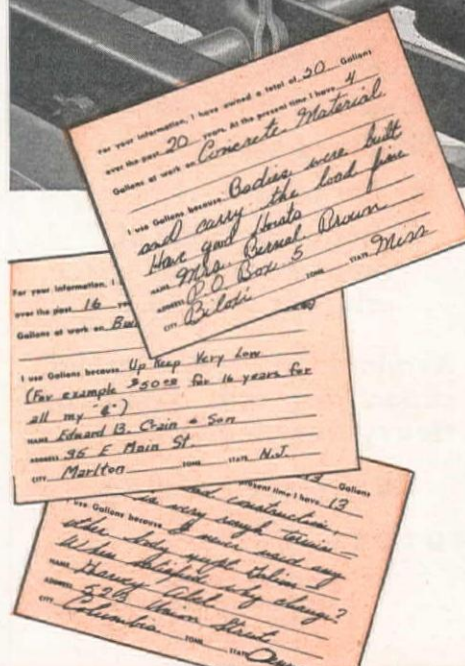 For your information, I have owned a total of 30 Gallons
over the past 20 years. At the present time I have 4
Galions at work on Concrete Material
I use Galions because Bodies were built
and carry the load fine
Have good Hoists
NAME Mrs. Bernal Brown
ADDRESS P.O. Box 5
CITY Biloxi ZONE STATE Miss
For your information, I
over the past 16
Galions at work on
I use Galions because Up Keep Very Low
(For example $50.00 for 16 years for
all my "6")
NAME Edward B. Crain & Son
ADDRESS 35 E Main St
CITY Marlton ZONE STATE N.J.
present time I have 13 Galions
construction,
in very rough terrain =
use Galions because I never used any
other body except Galion -
When satisfied why change?
NAME Harvey
ADDRESS Union Street
CITY Columbia ZONE STATE